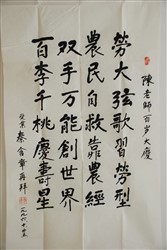 陳老師百岁大慶
勞大弦歌習勞型
農民自救靠農經
双手万能創世界
百李千桃慶壽生
受業秦含章再拜